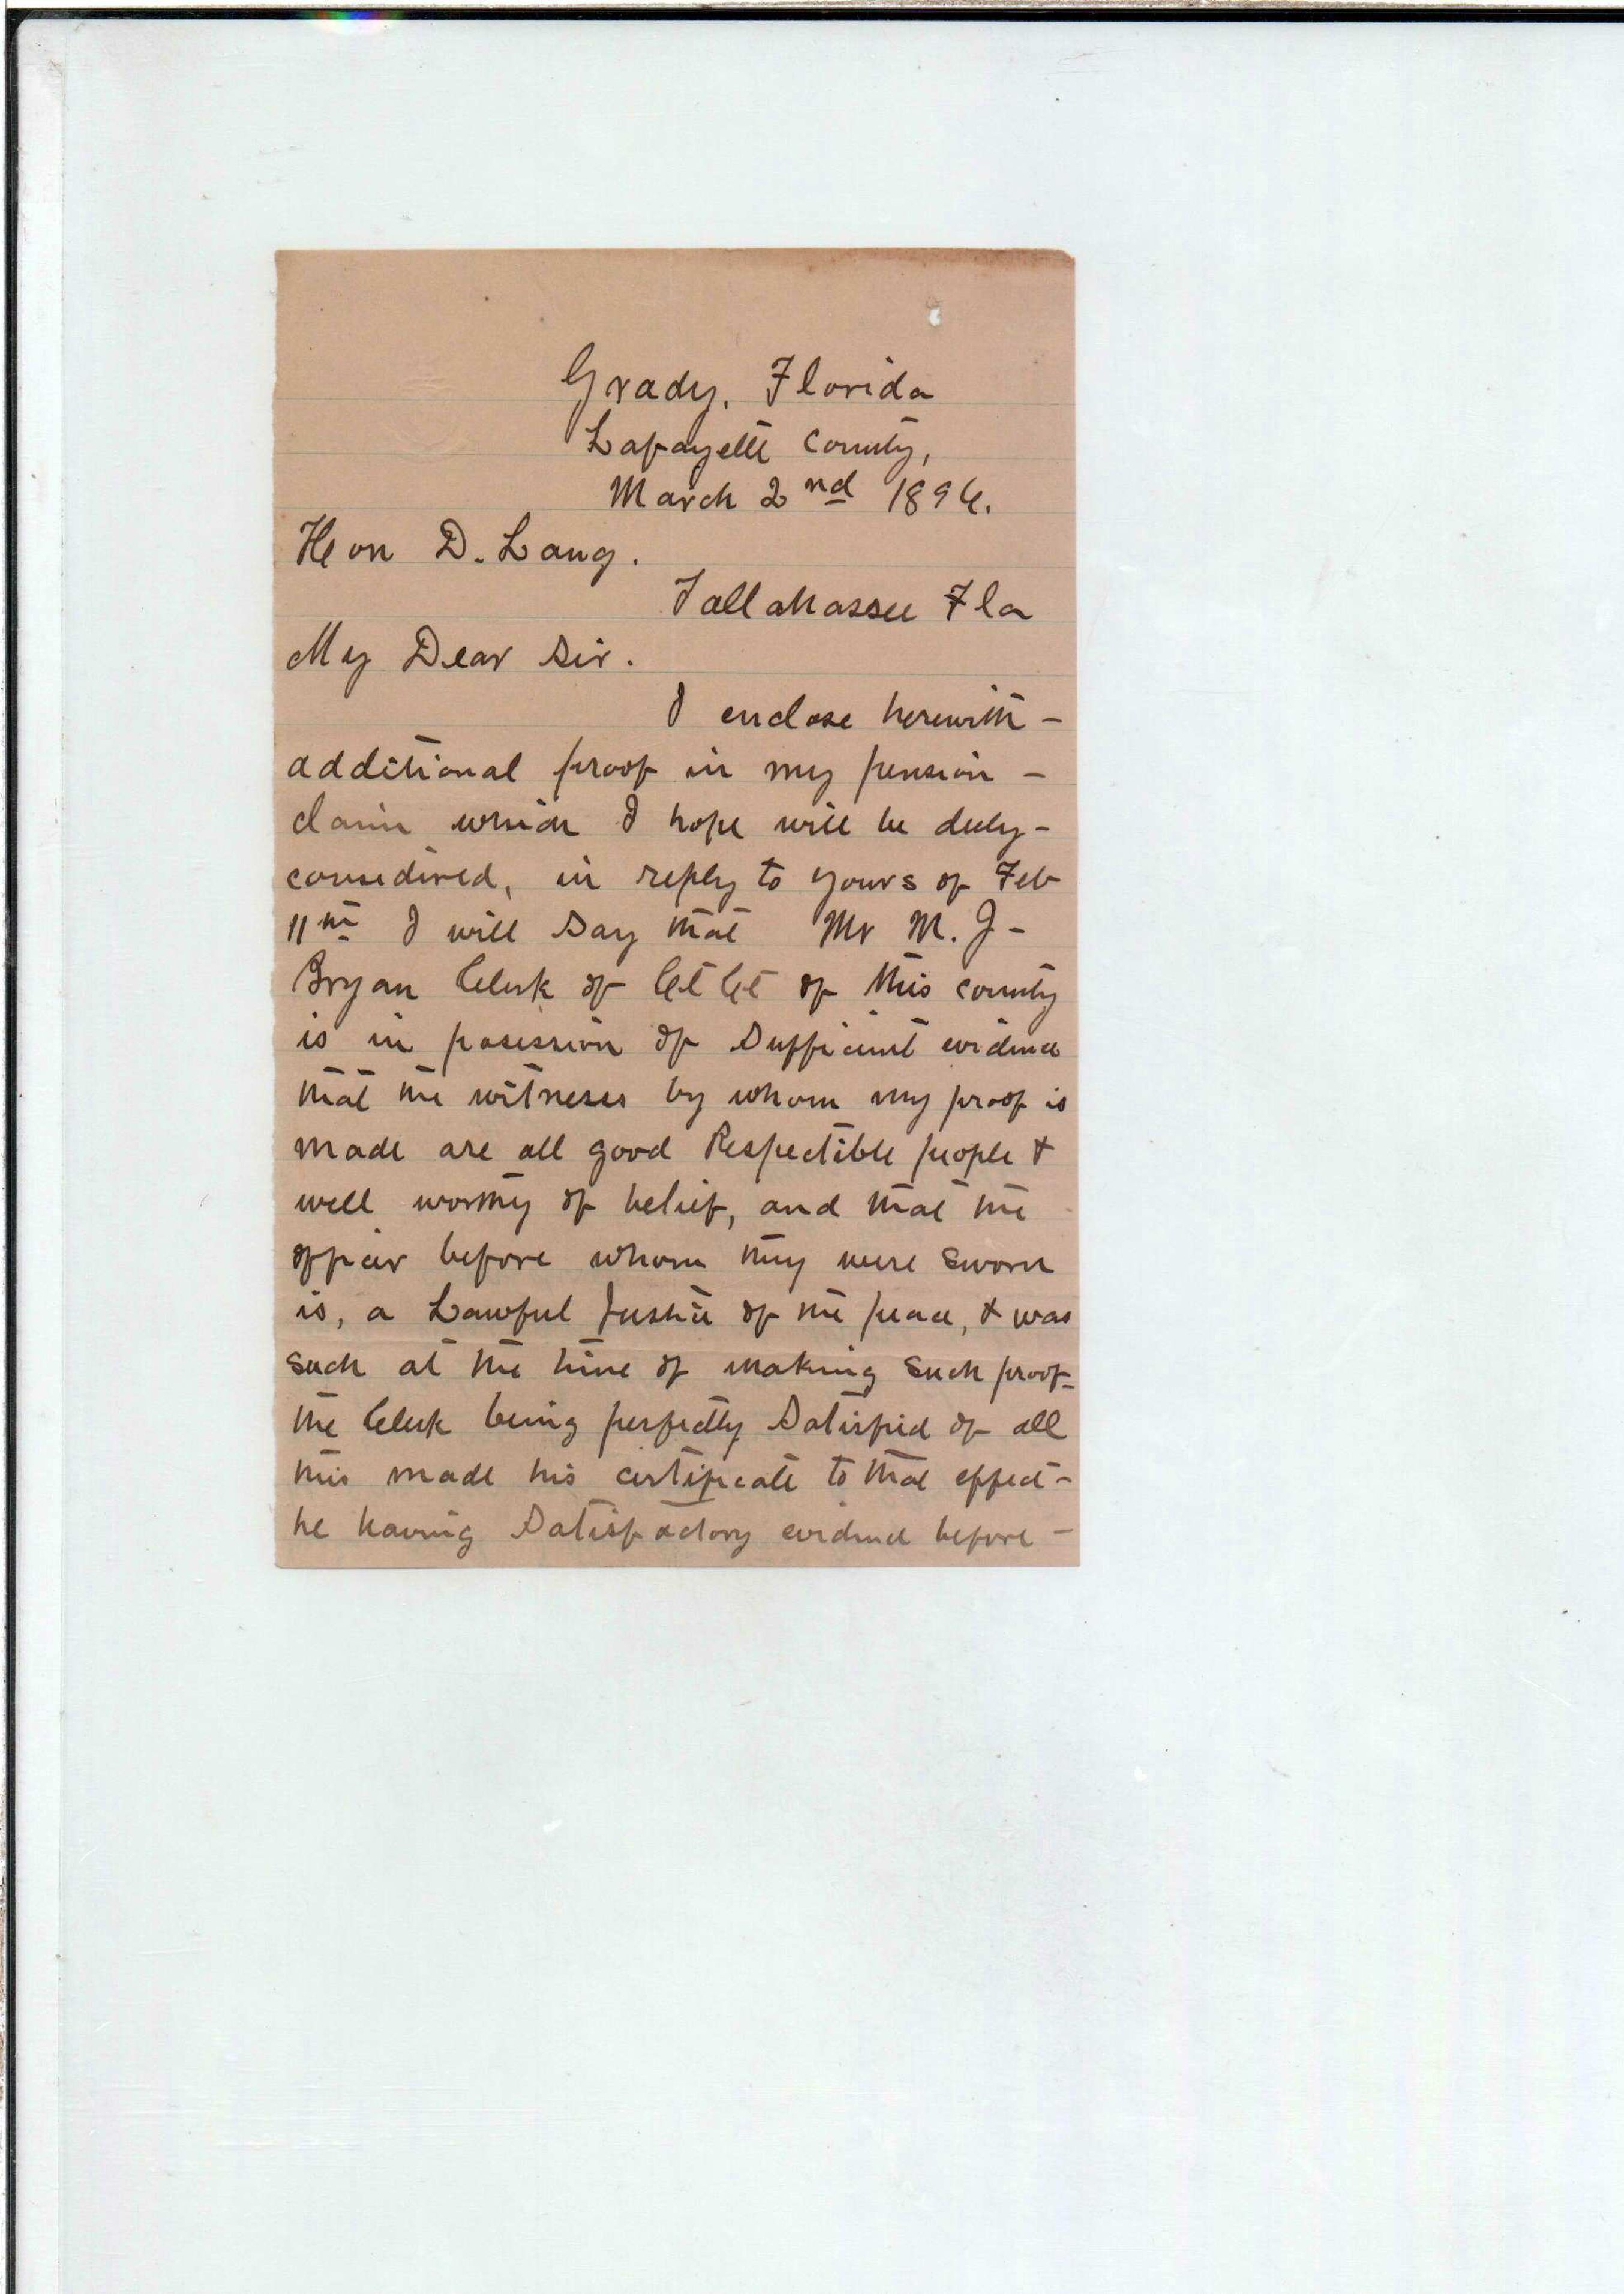 Grady, Florida
Lafayette County,
March 2nd 1896.
Hon D. Lang.
Tallahassee Fla
My Dear Sir.
I enclose herewith -
additional proof in my pension -
claim which I hope will be duly -
considired, in reply to yours of Feb
11th I will Say that Mr M. J -
Bryan Clerk of Ct Ct of this county
is in posession of Sufficient evidence
that the witneses by whom my proof is
made are all good Respectible people &
well worthy of belief, and that the
officer before whom they were sworn
is, a Lawful Justice of the peace, & was
such at the time of making such proof -
the Clerk being perfectly Satisfied of all
this made his certificate to that effect -
he having Satisfactory evidence before -